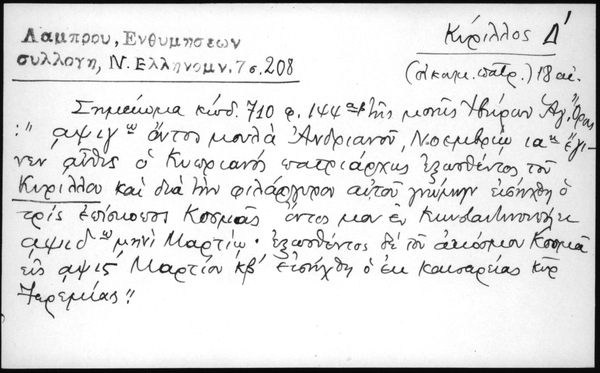 Λαμπρου, Ενθυμησεων
συλλογη, Ν. Ελληνομν. 7 σ. 208
Κύριλλος Δ'
(οἰκουμ. πατρ.) 18 αἰ.
Σημείωμα κώδ. 710 φ. 144 τῆς μονῆς Ἰβήρων Ἁγ. Ὄρους
:" αψιγω ὄντος μουλᾶ Ἀνδριανοῦ, Νοεμβρίῳ ια ἔγι-
νεν αὖθις ὁ Κυπριανός πατριάρχης ἐξωσθέντος τοῦ
Κυρίλλου καὶ διά τήν φιλάργυρον αὐτοῦ γνώμην εἰσήχθη ὁ
τρίς ἐπίσκοπος Κοσμᾶς ὄντος μου ἐν Κωνσταντινουπόλει
αψιδω μηνί Μαρτίῳ. ἐξωσθέντος δέ τοῦ ἀκόσμου Κοσμᾶ
εἰς αψις' Μαρτίου κβ' εἰσήχθη ὁ ἐκ καισαρείας κύρ
Ἱερεμίας".